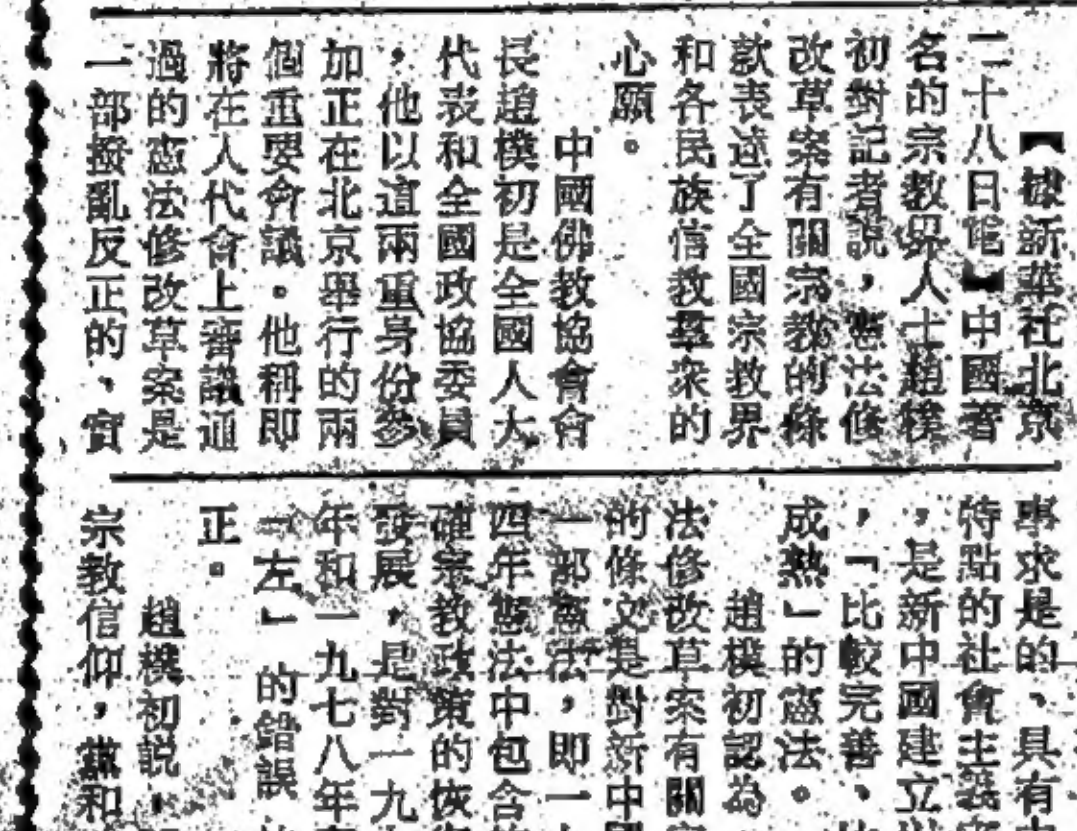 【據新華社北京
二十八日電】中國著
名的宗教界人士趙樸
初對記者說，憲法修
改草案有關宗教的條
款表達了全國宗教界
和各民族信教羣眾的
心願。
中國佛教協會會
長趙樸初是全國人大
代表和全國政協委員
，他以這兩重身份參
加正在北京舉行的兩
個重要會議。他稱即
將在人代會上審議通
過的憲法修改草案是
一部撥亂反正的、實
事求是的、具有
特點的社會主義
，是新中國建立
，「比較完善、
成熟」的憲法。
趙樸初認為
法修改草案有關
的條文是對新中
一部憲法，即一
四年憲法中包含
確宗教政策的恢
發展，是對一九
年和一九七八年
「左」的錯誤
正。
趙樸初説，
宗教信仰，黨和